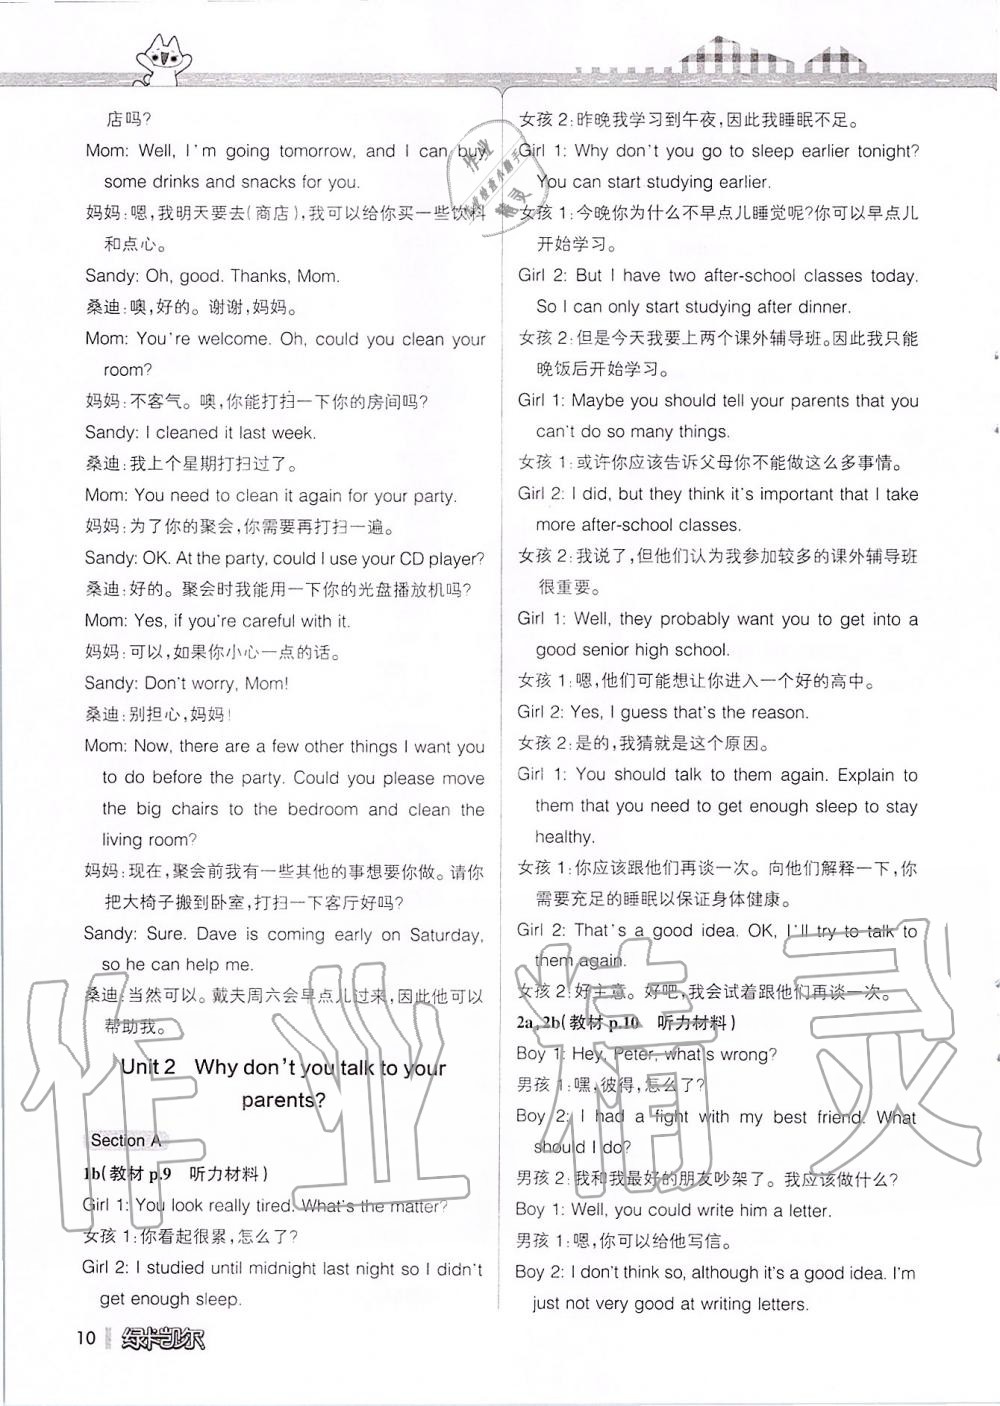 店吗?
Mom: Well, I'm going tomorrow, and I can buy
some drinks and snacks for you.
妈妈:嗯,我明天要去(商店),我可以给你买一些饮料
和点心。
Sandy: Oh, good. Thanks, Mom.
桑迪:噢,好的。谢谢,妈妈。
Mom: You're welcome. Oh, could you clean your
room?
妈妈:不客气。噢,你能打扫一下你的房间吗?
Sandy: I cleaned it last week.
桑迪:我上个星期打扫过了。
Mom: You need to clean it again for your party.
妈妈:为了你的聚会,你需要再打扫一遍。
Sandy: OK. At the party, could I use your CD player?
桑迪:好的。聚会时我能用一下你的光盘播放机吗?
Mom: Yes, if you're careful with it.
妈妈:可以,如果你小心一点的话。
Sandy: Don't worry, Mom!
桑迪:别担心,妈妈!
Mom: Now, there are a few other things I want you
to do before the party. Could you please move
the big chairs to the bedroom and clean the
living room?
妈妈:现在,聚会前我有一些其他的事想要你做。请你
把大椅子搬到卧室,打扫一下客厅好吗?
Sandy: Sure. Dave is coming early on Saturday,
so he can help me.
桑迪:当然可以。戴夫周六会早点儿过来,因此他可以
帮助我。
Unit 2 Why don't you talk to your
parents?
Section A
1b(教材 p.9 听力材料)
Girl 1: You look really tired. What's the matter?
女孩 1:你看起很累,怎么了?
Girl 2: I studied until midnight last night so I didn't
get enough sleep.
女孩 2:昨晚我学习到午夜,因此我睡眠不足。
Girl 1: Why don't you go to sleep earlier tonight?
You can start studying earlier.
女孩 1:今晚你为什么不早点儿睡觉呢?你可以早点儿
开始学习。
Girl 2: But I have two after-school classes today.
So I can only start studying after dinner.
女孩 2:但是今天我要上两个课外辅导班。因此我只能
晚饭后开始学习。
Girl 1: Maybe you should tell your parents that you
can't do so many things.
女孩 1:或许你应该告诉父母你不能做这么多事情。
Girl 2: I did, but they think it's important that I take
more after-school classes.
女孩 2:我说了,但他们认为我参加较多的课外辅导班
很重要。
Girl 1: Well, they probably want you to get into a
good senior high school.
女孩 1:嗯,他们可能想让你进入一个好的高中。
Girl 2: Yes, I guess that's the reason.
女孩 2:是的,我猜就是这个原因。
Girl 1: You should talk to them again. Explain to
them that you need to get enough sleep to stay
healthy.
女孩 1:你应该跟他们再谈一次。向他们解释一下,你
需要充足的睡眠以保证身体健康。
Girl 2: That's a good idea. OK, I'll try to talk to
them again.
女孩 2:好主意。好吧,我会试着跟他们再谈一次。
2a,2b(教材 p.10 听力材料)
Boy 1: Hey, Peter, what's wrong?
男孩 1:嘿,彼得,怎么了?
Boy 2: I had a fight with my best friend. What
should I do?
男孩 2:我和我最好的朋友吵架了。我应该做什么?
Boy 1: Well, you could write him a letter.
男孩 1:嗯,你可以给他写信。
Boy 2: I don't think so, although it's a good idea. I'm
just not very good at writing letters.
10 绿卡凯尔
作业精灵